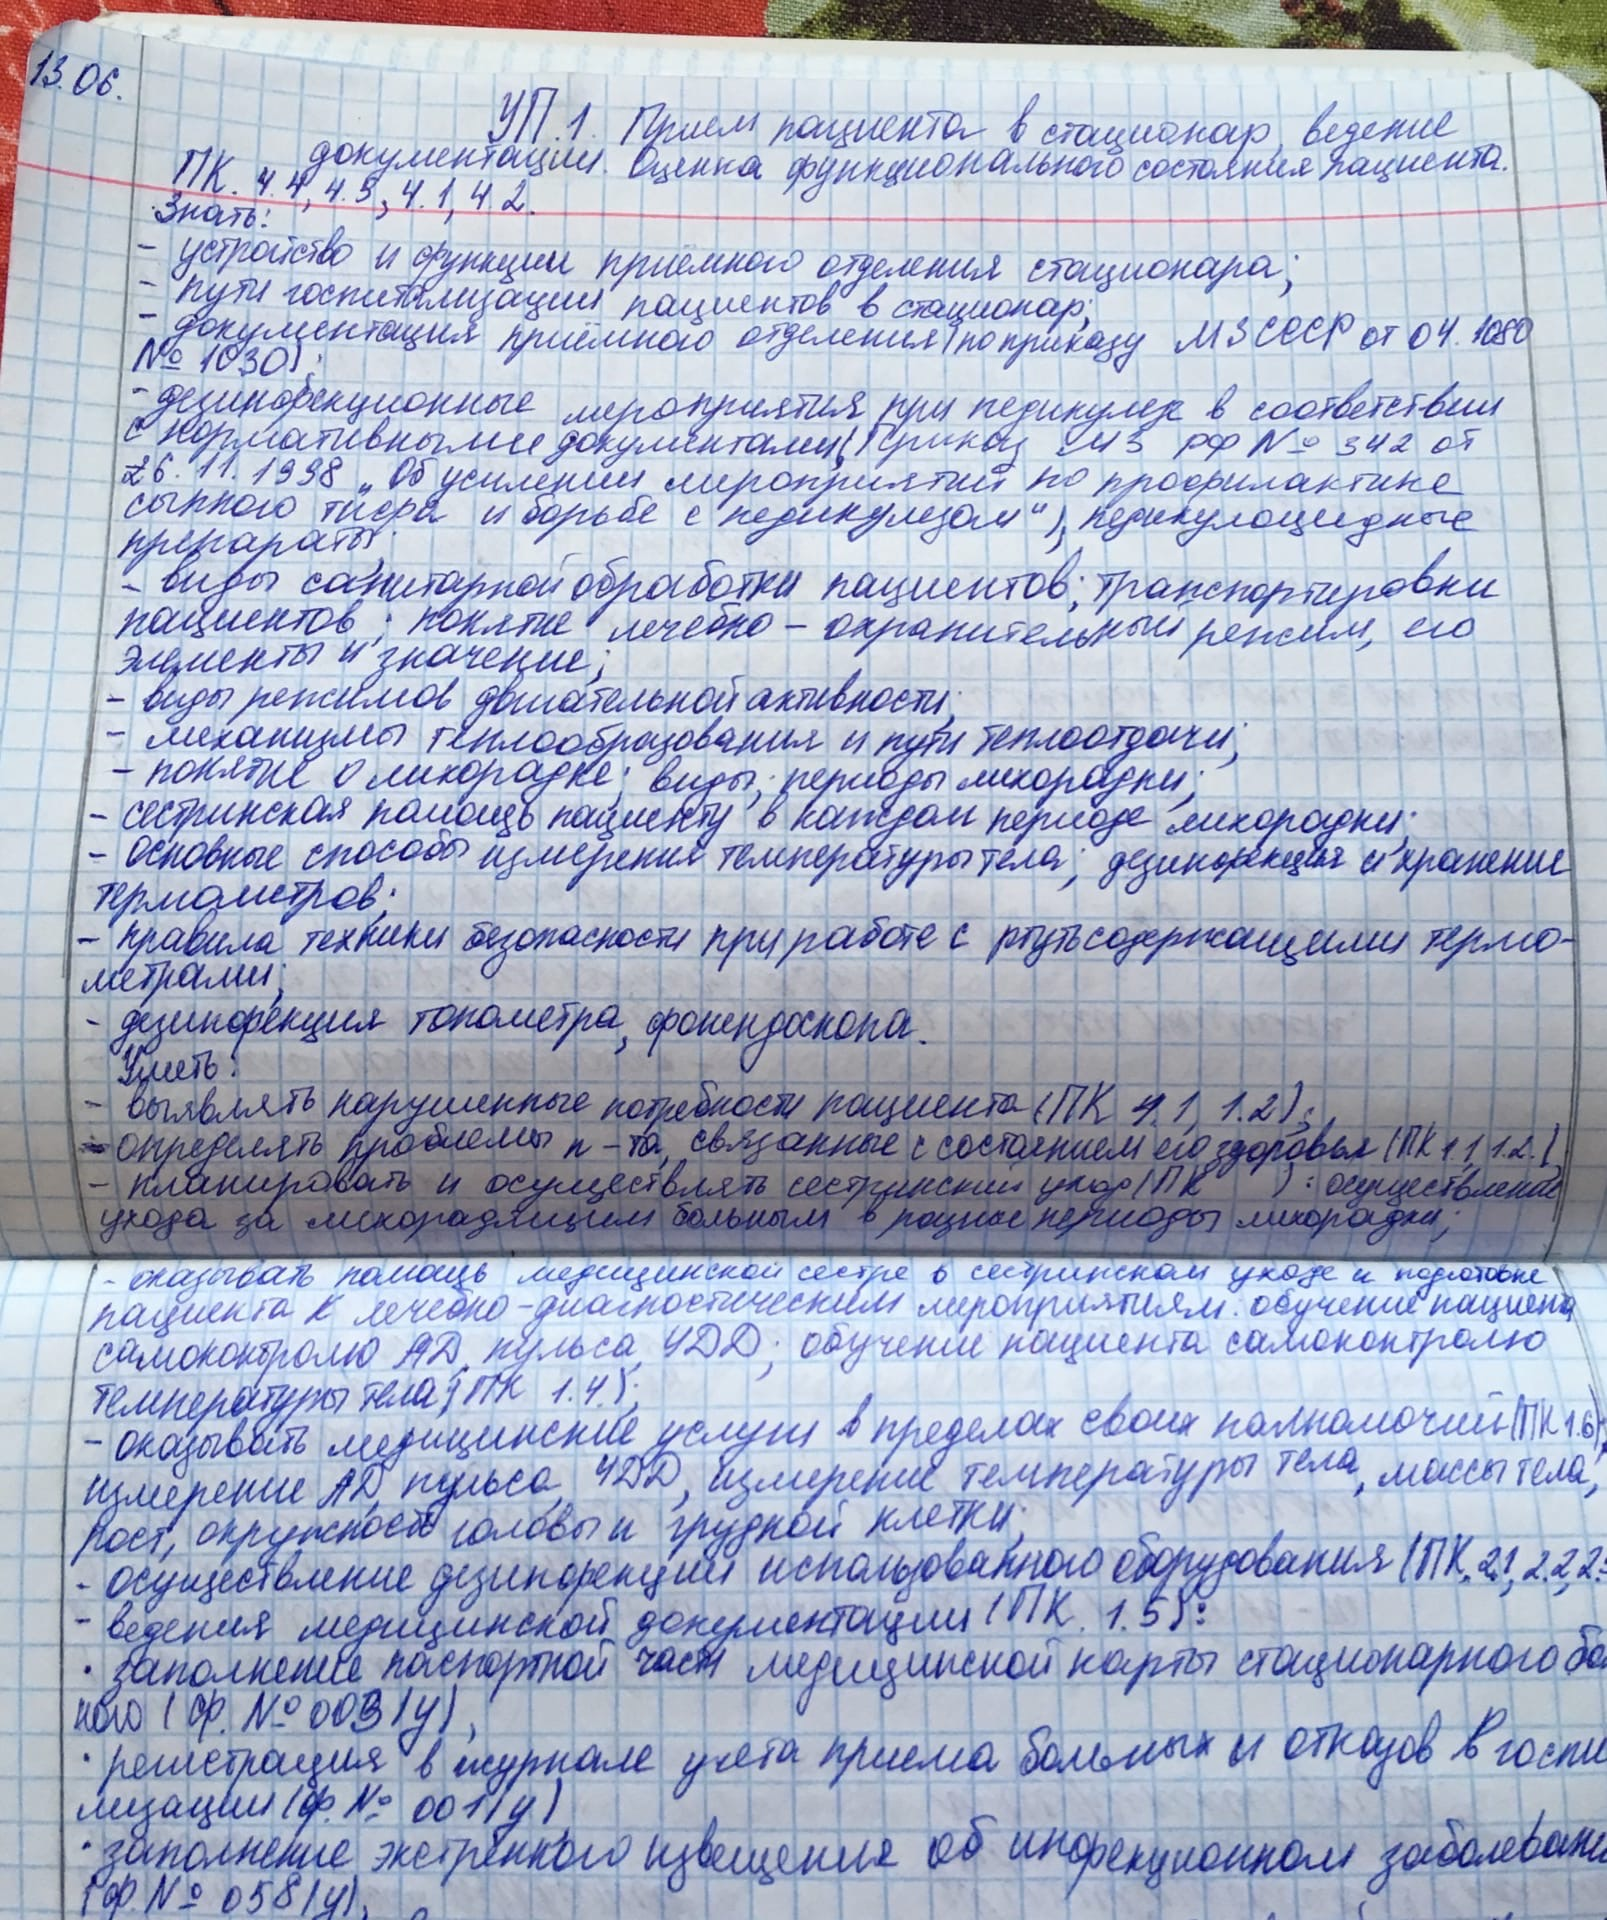 13.06.
УП.1. Прием пациента в стационар, ведение
документации. Оценка функционального состояния пациента.
ПК. 4.4, 4.3, 4.1, 4.2.
Знать:
- устройство и функции приёмного отделения стационара;
- пути госпитализации пациентов в стационар;
- документация приёмного отделения (по приказу МЗ СССР от 04. 1080
№ 1030);
- дезинфекционные мероприятия при педикулезе в соответствии
с нормативными документами (Приказ МЗ РФ № 342 от
26.11.1998 „Об усилении мероприятий по профилактике
сыпного тифа и борьбе с педикулезом"), педикулоцидные
препараты;
- виды санитарной обработки пациентов; транспортировки
пациентов; понятие лечебно - охранительный режим, его
элементы и значение;
- виды режимов двигательной активности;
- механизмы теплообразования и пути теплоотдачи;
- понятие о лихорадке; виды; периоды лихорадки;
- сестринская помощь пациенту в каждом периоде лихорадки;
- основные способы измерения температуры тела; дезинфекция и хранение
термометров;
- правила техники безопасности при работе с ртутьсодержащими термо-
метрами;
- дезинфекция тонометра, фонендоскопа.
Уметь:
- выявлять нарушенные потребности пациента (ПК 4.1, 1.2);
- определять проблемы п-та, связанные с состоянием его здоровья (ПК 1.1, 1.2.)
- планировать и осуществлять сестринский уход (ПК ): осуществление
ухода за лихорадящим больным в разные периоды лихорадки;
- оказывать помощь медицинской сестре в сестринском уходе и подготовке
пациента к лечебно-диагностическим мероприятиям. обучение пациента
самоконтролю АД, пульса, ЧДД; обучение пациента самоконтролю
температуры тела (ПК 1.4);
- оказывать медицинские услуги в пределах своих полномочий (ПК 1.6);
измерение АД, пульса, ЧДД, измерение температуры тела, массы тела,
рост, окружности головы и грудной клетки;
- осуществление дезинфекции использованного оборудования (ПК. 2.1, 2.2, 2.
- ведения медицинской документации (ПК. 1.5):
· заполнение паспортной части медицинской карты стационарного бол
ного (ф. № 003/у),
· регистрация в журнале учета приема больных и отказов в госпи
лизации (ф. № 001/у)
· заполнение экстренного извещения об инфекционном заболевани
(ф. № 058/у),